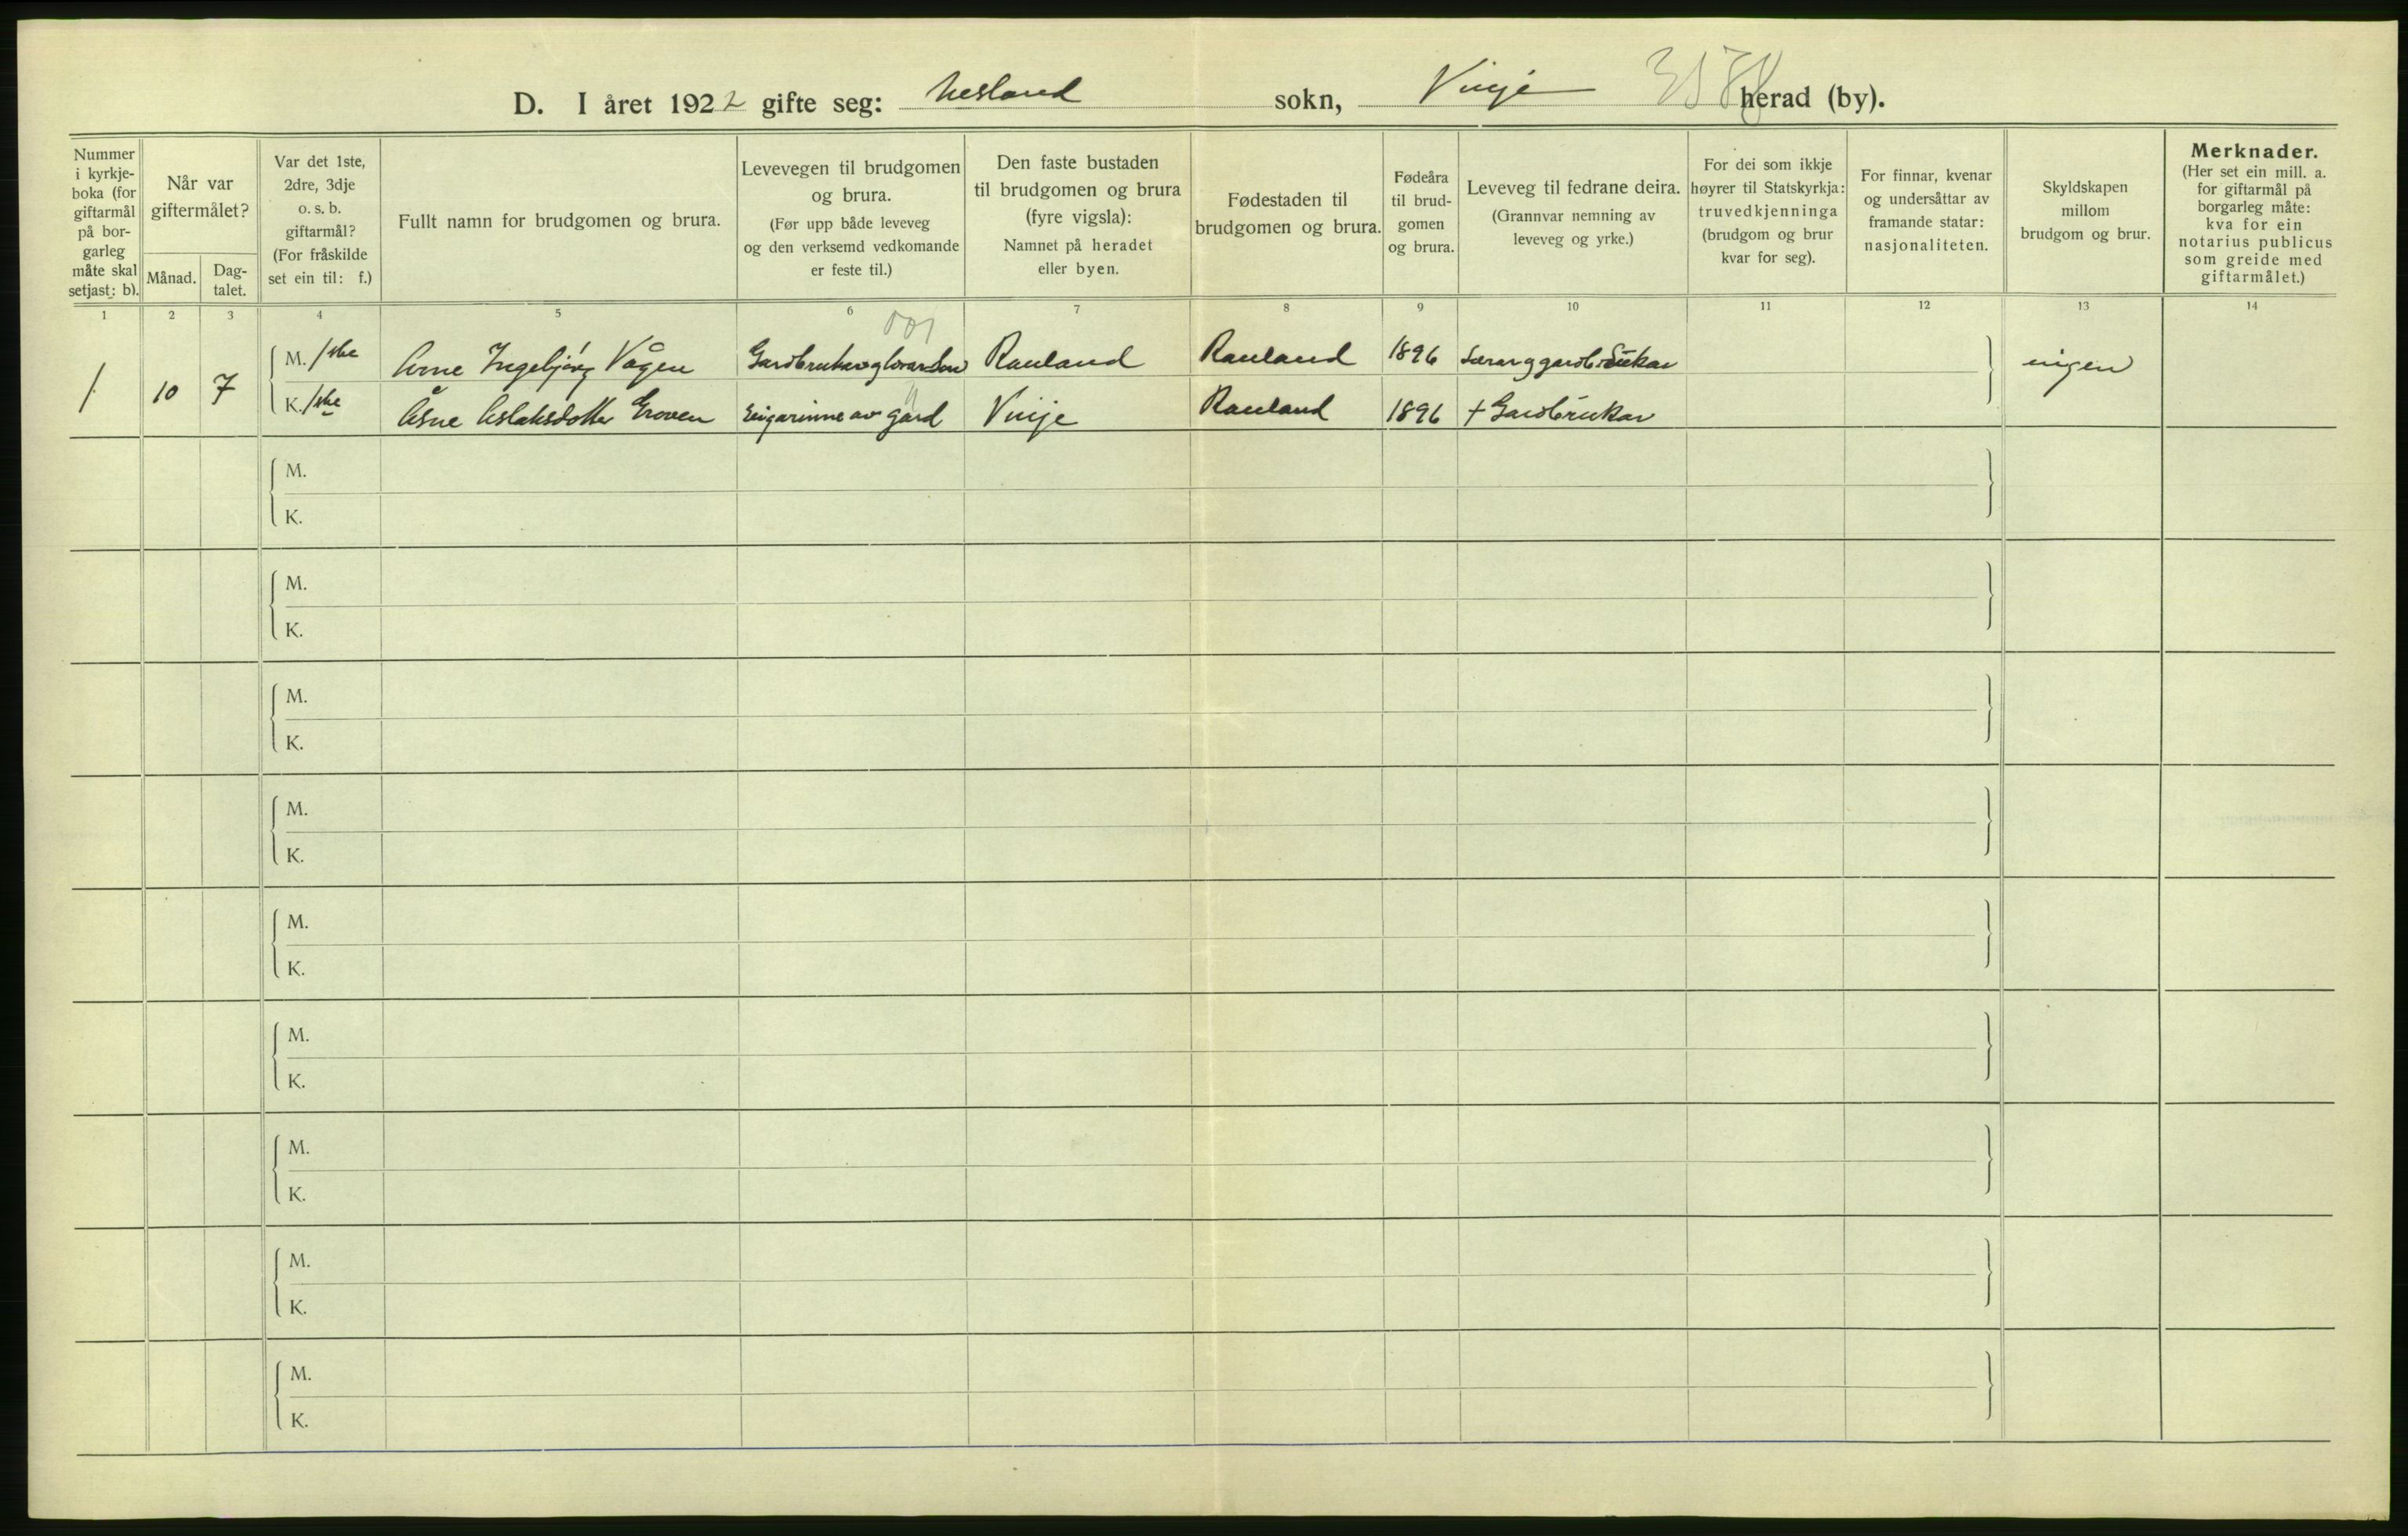 D. I året 1922 gifte seg: Nesland sokn, Vinje herad (by).
Nummer i kyrkje-boka (for giftarmål på bor-garleg måte skal setjast: b).
Når var giftermålet?
Månad.
Dag-talet.
Var det 1ste, 2dre, 3dje o. s. b. giftarmål? (For fråskilde set ein til: f.)
Fullt namn for brudgomen og brura.
Levevegen til brudgomen og brura. (Før upp både leveveg og den verksemd vedkomande er feste til.)
Den faste bustaden til brudgomen og brura (fyre vigsla): Namnet på heradet eller byen.
Fødestaden til brudgomen og brura.
Fødeåra til brud-gomen og brura.
Leveveg til fedrane deira. (Grannvar nemning av leveveg og yrke.)
For dei som ikkje høyrer til Statskyrkja: truvedkjenninga (brudgom og brur kvar for seg).
For finnar, kvenar og undersåttar av framande statar: nasjonaliteten.
Skyldskapen millom brudgom og brur.
Merknader. (Her set ein mill. a. for giftarmål på borgarleg måte: kva for ein notarius publicus som greide med giftarmålet.)
1 2 3 4 5 6 7 8 9 10 11 12 13 14
1 10 7
M. 1ste Arne Ingebjørg Vågen Rauland Rauland 1896 ingen
K. 1ste Åsne Aslaksdotter Groven Eigarinne av gard Vinje Rauland 1896 + Gardbrukar
M.
K.
M.
K.
M.
K.
M.
K.
M.
K.
M.
K.
M.
K.
M.
K.
M.
K.